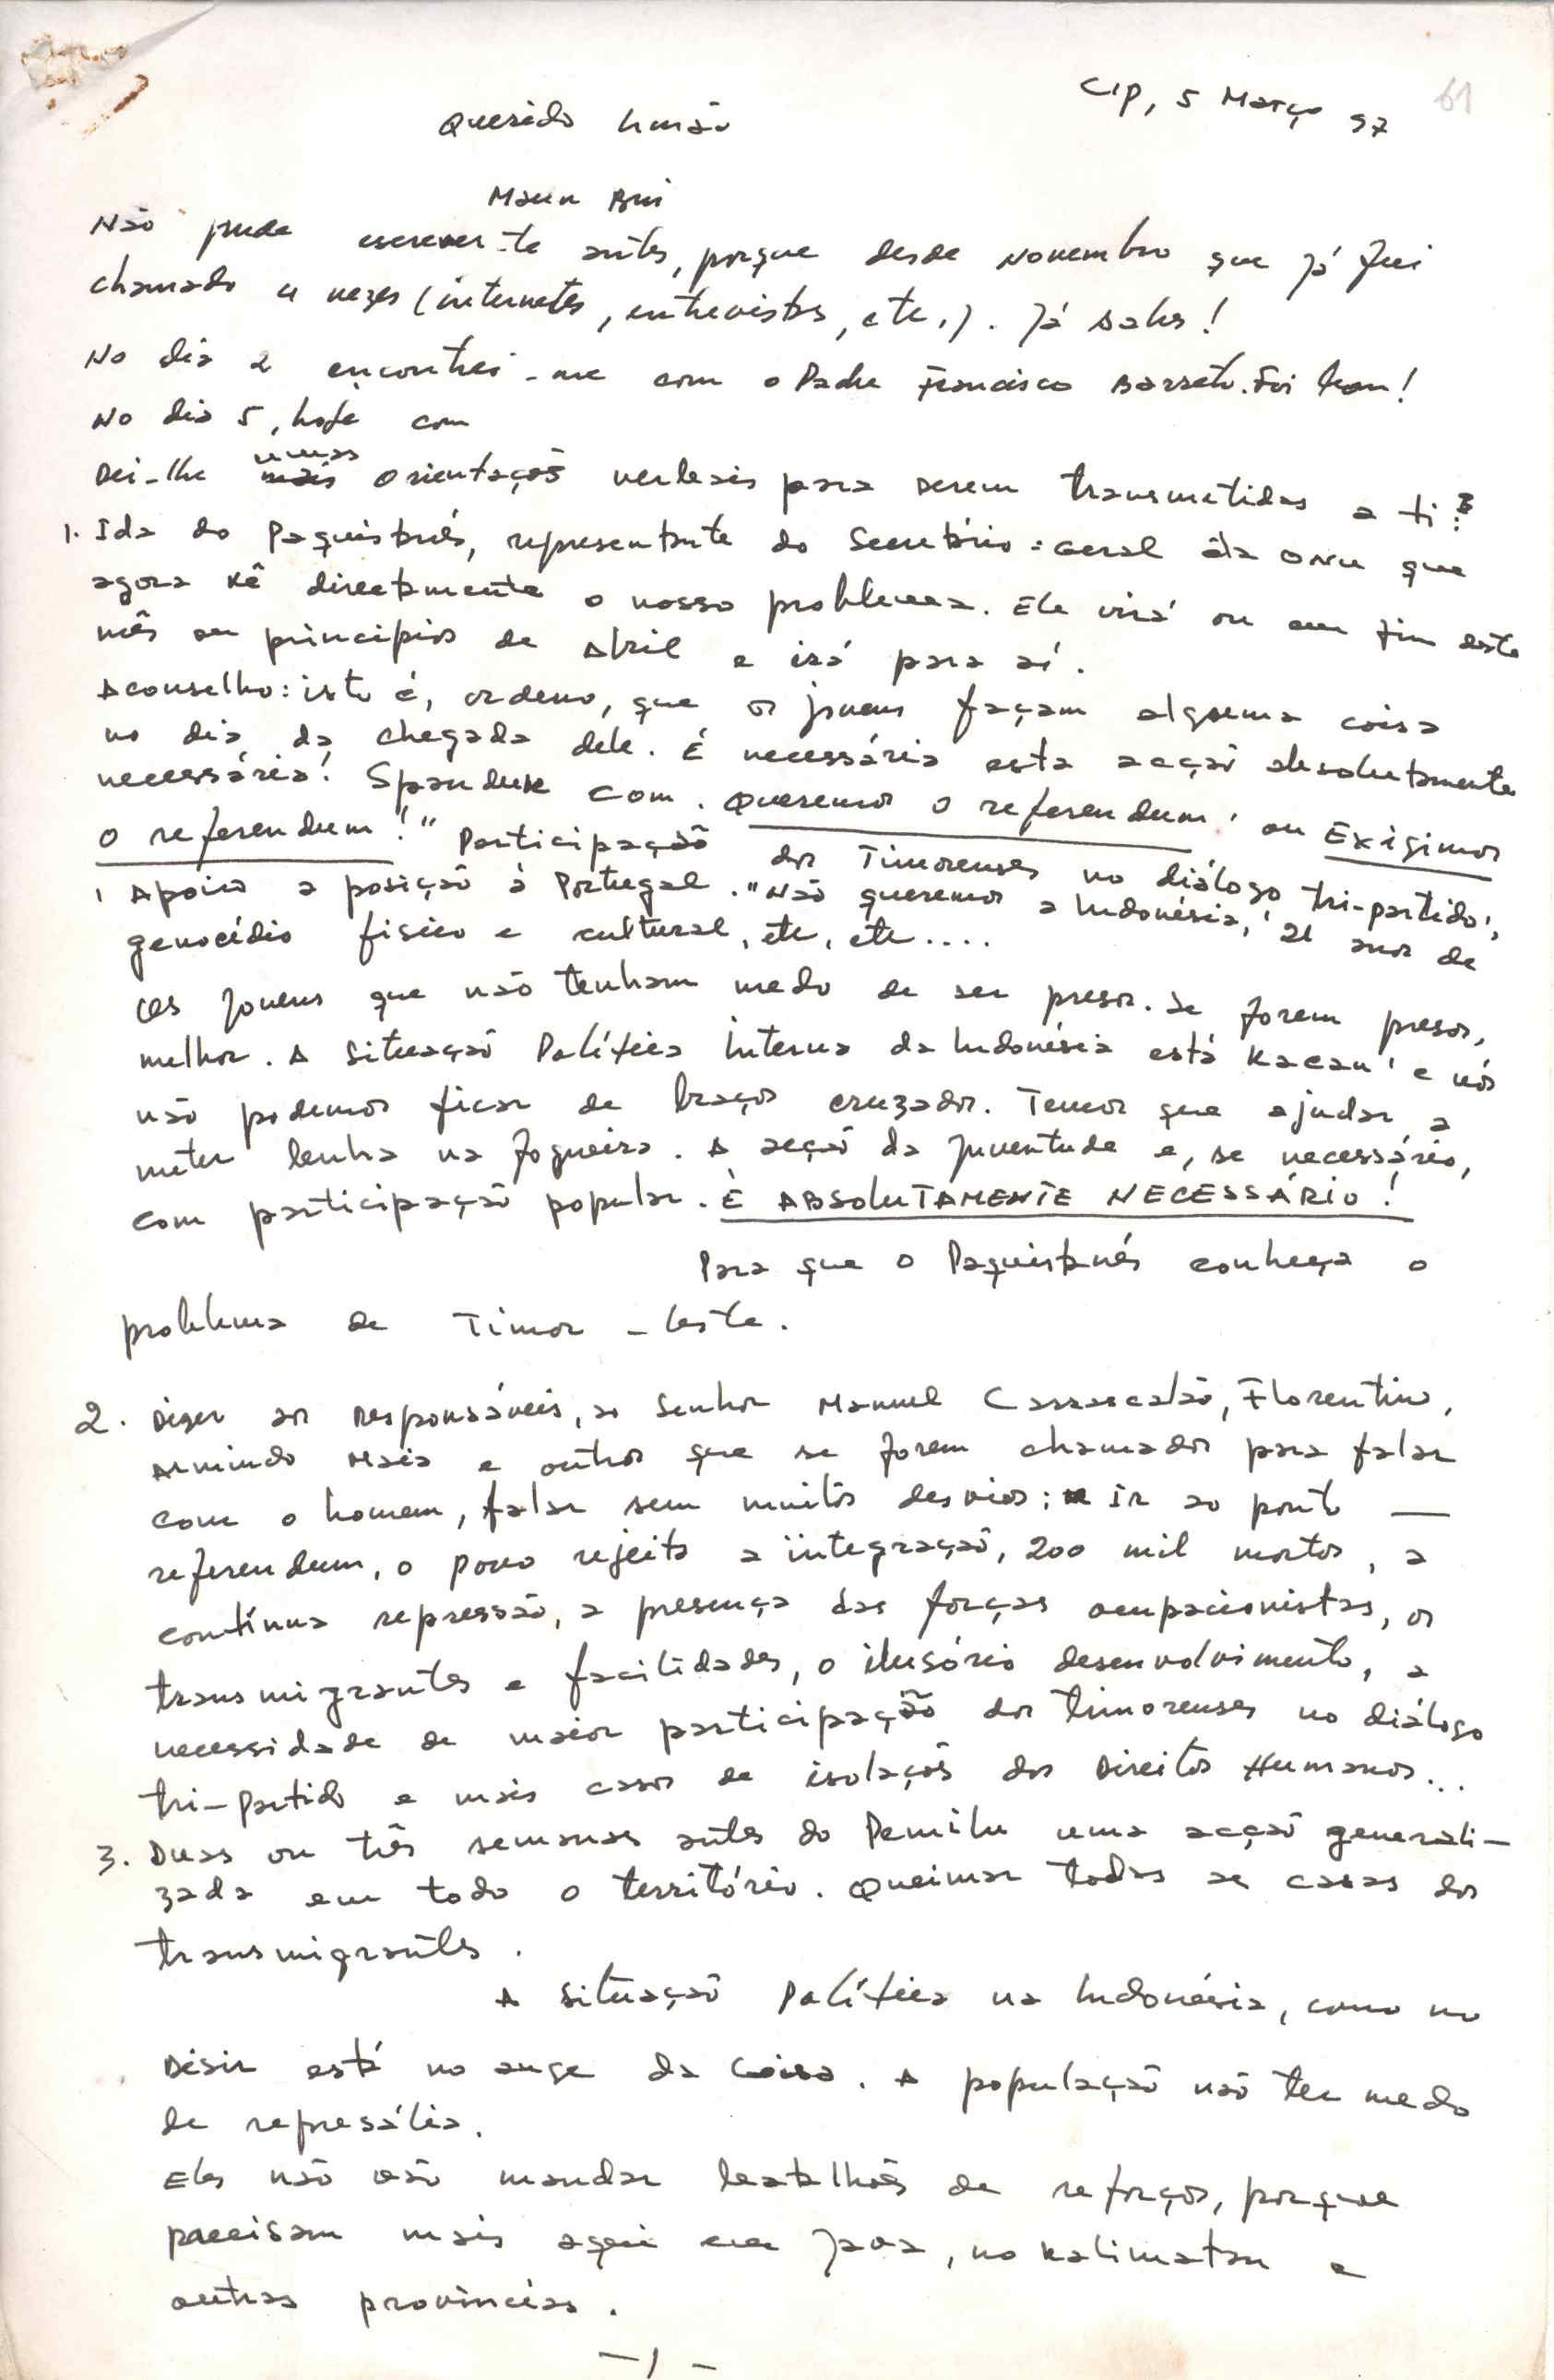 Cip, 5 Março 97
61
Querido Irmão
Maun Bui
Não pude escrever-te antes, porque desde Novembro que já fui
chamado 4 vezes (internetes, entrevistas, etc,). Já sabes!
No dia 2 encontrei-me com o Padre Francisco Barreto. Foi bom!
No dia 5, hoje com
Dei-lhe umas orientações verbais para serem transmetidas a ti:
1. Ida do Paquistanês, representante do Secretário-Geral da ONU que
agora vê directamente o nosso problema. Ele virá ou em fim deste
mês ou princípios de Abril e irá para aí.
Aconselho: isto é, ordeno, que os jovens façam alguma coisa
no dia da chegada dele. É necessária esta acção absolutamente
necessária! Spanduk com. Queremos o referendum' ou Exigimos
o referendum!" Participação dos Timorenses no diálogo tri-partido',
' Apoio a posição à Portugal. "Não queremos a Indonésia,' 21 anos de
genocídio físico e cultural, etc, etc....
Os jovens que não tenham medo de ser presos. Se forem presos,
melhor. A situação Política Interna da Indonésia está Kacau' e nós
não podemos ficar de braços cruzados. Temos que ajudar a
meter lenha na fogueira. A acção da juventude e, se necessário,
com participação popular. É ABSOLUTAMENTE NECESSÁRIO!
Para que o Paquistanês conheça o
problema de Timor-Leste.
2. Dizer aos responsáveis, ao Senhor Manuel Carrascalão, Florentino,
Armindo Maia e outros que se forem chamados para falar
com o homem, falar sem muitos desvios; Ir ao ponto —
referendum, o povo rejeita a integração, 200 mil mortos, a
contínua repressão, a presença das forças ocupacionistas, os
transmigrantes e facilidades, o ilusório desenvolvimento, a
necessidade de maior participação dos timorenses no diálogo
tri-partido e mais casos de isolações dos Direitos Humanos...
3. Duas ou três semanas antes do Pemilu uma acção generali-
zada em todo o território. Queimar todas as casas dos
transmigrantes.
A situação Política na Indonésia, como no
está no auge da coisa. A população não ter medo
de represália.
Eles não vão mandar batalhões de reforços, porque
precisam mais aqui em Java, no Kalimatan e
outras províncias.
-1-